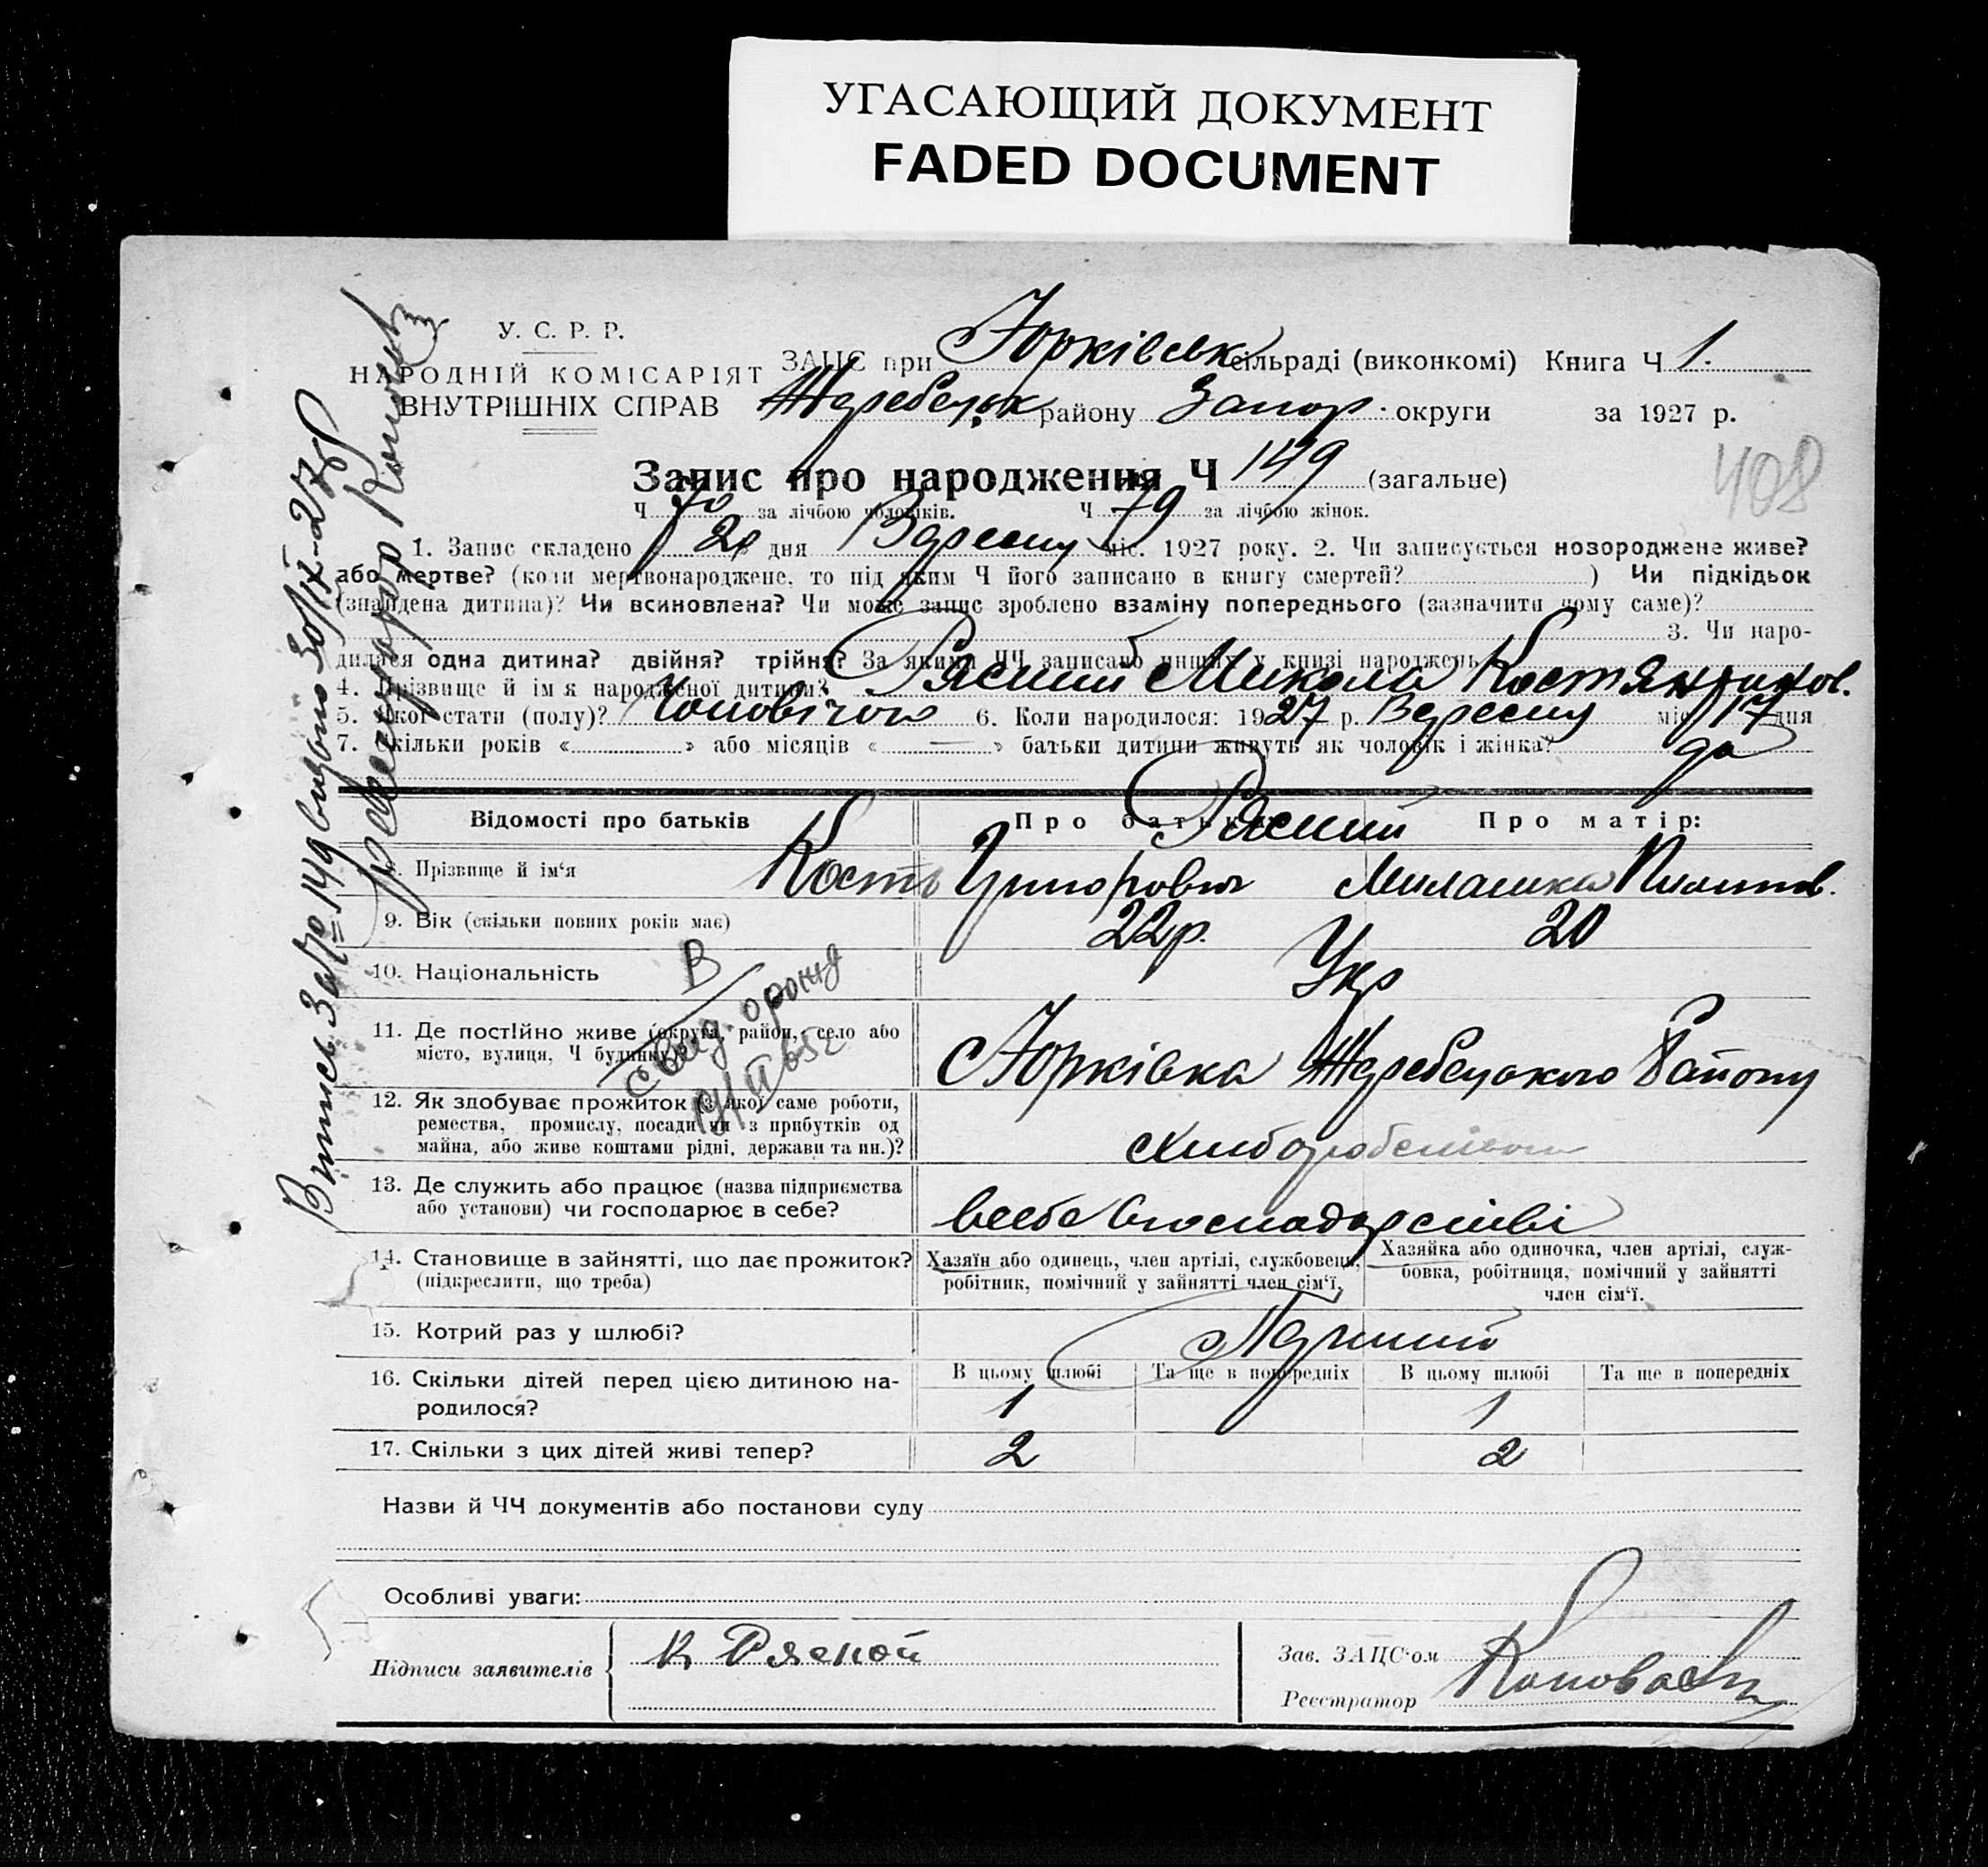 УГАСАЮЩИЙ ДОКУМЕНТ
FADED DOCUMENT
У. С. Р. Р.
НАРОДНІЙ КОМІСАРІЯТ
ВНУТРІШНІХ СПРАВ
ЗАЦС при Юрківськ сільраді (виконкомі) Книга Ч 1.
Жеребецьк району Запор. округи за 1927 р.
408
Запис про народження Ч 149 (загальне)
Ч 70 за лічбою чоловіків. Ч 79 за лічбою жінок.
1. Запис складено 20 дня Вересня міс. 1927 року. 2. Чи записується новороджене живе?
або мертве? (коли мертвонароджене, то під яким Ч його записано в книгу смертей? ) Чи підкідьок
(знайдена дитина)? Чи всиновлена? Чи може запис зроблено взаміну попереднього (зазначити чому саме)?
3. Чи наро-
дилася одна дитина? двійня? трійня? За якими ЧЧ записано инших у книзі народжень
4. Прізвище й ім'я народженої дитини? Рясний Микола Костянтинов.
5. Якої стати (полу)? Чоловічої 6. Коли народилося: 1927 р. Вересня міс. 17 дня
7. Скільки років « » або місяців « — » батьки дитини живуть як чоловік і жінка? да
Відомості про батьків Про батька Про матір:
Рясний
8. Прізвище й ім'я Кость Григорович Милашка
9. Вік (скільки повних років має) 22р. 20
10. Національність Укр
11. Де постійно живе (округа, район, село або
місто, вулиця, Ч будинку)?
с Юрківка Жеребецького Району
12. Як здобуває прожиток (з якої саме роботи,
ремества, промислу, посади чи з прибутків од
майна, або живе коштами рідні, держави та ин.)?
хліборобством
13. Де служить або працює (назва підприємства
або установи) чи господарює в себе?
в себе в господарстві
14. Становище в зайнятті, що дає прожиток?
(підкреслити, що треба)
Хазяїн або одинець, член артілі, службовець,
робітник, помічний у зайнятті член сім'ї,
Хазяйка або одиночка, член артілі, служ-
бовка, робітниця, помічний у зайнятті
член сім'ї.
15. Котрий раз у шлюбі? Перший
16. Скільки дітей перед цією дитиною на-
родилося?
В цьому шлюбі Та ще в попередніх В цьому шлюбі Та ще в попередніх
1 1
17. Скільки з цих дітей живі тепер? 2 2
Назви й ЧЧ документів або постанови суду
Особливі уваги:
Підписи заявителів К Рясной
Зав. ЗАЦС'ом
Реєстратор
Випись За № 149 видано 30/IX-27р
В
свид. о рожд